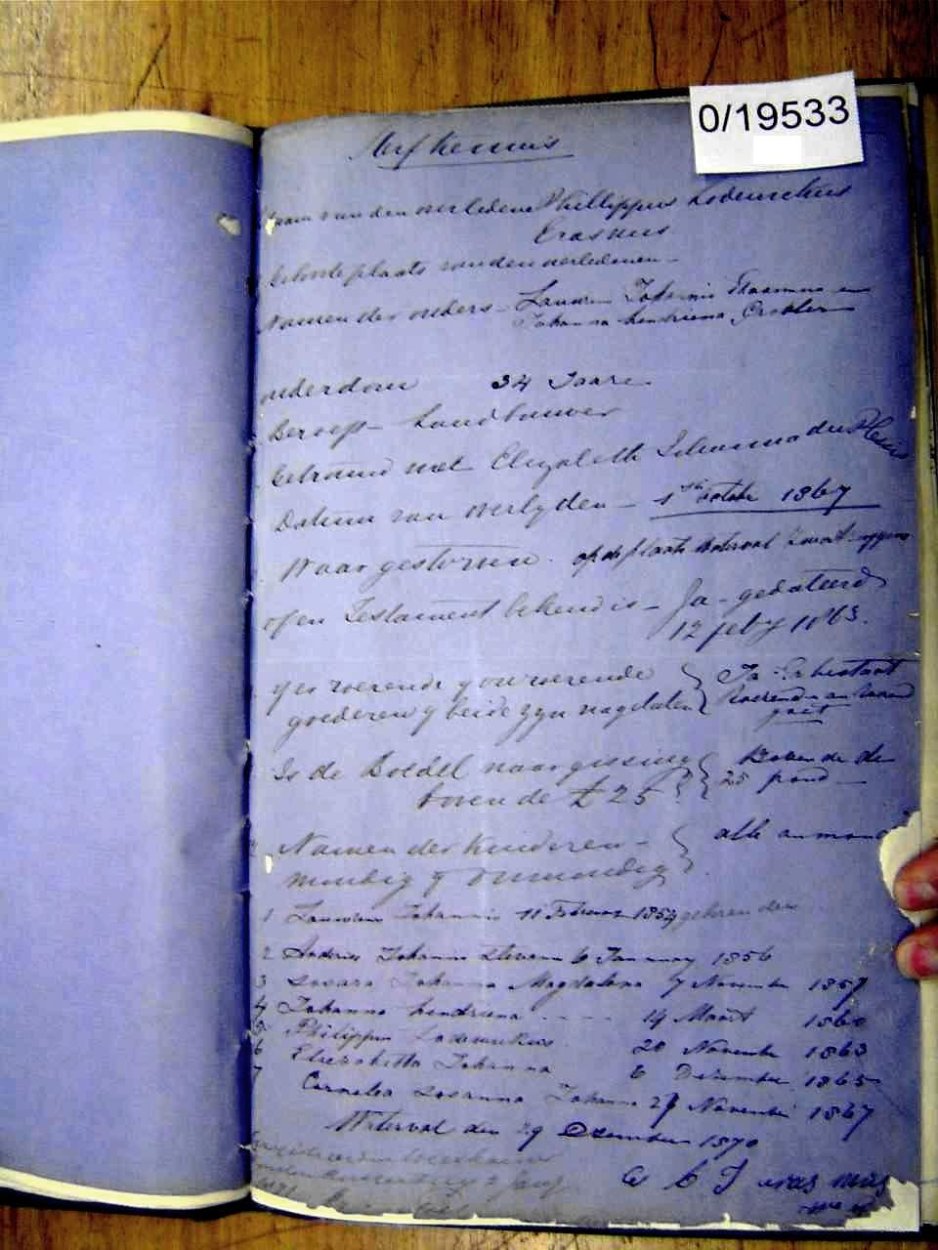 0/19533
Sterfkennis
Naam van den overledene Phillippus Lodewickus
Erasmus
Geboorteplaats van den overledenen -
Namen der ouders - Lauwrens Johannis Erasmus en
Johanna hendriena Grobler
ouderdom 34 Jaare
Beroep - Landbouwer
Getrouwd met Elizabeth Johanna du Plessis
Datum van overlyden - 1ste October 1867
Waar gestorven . op de plaats Waterval
of en Testament bekend is - Ja - gedateerd
12 feby 1863.
of er roerende of onroerende } Ja - Er bestaat
goederen of beide zyn nagelaten } roerend en
goet
Is de Boedel naar gissing } Boven de
boven de £ 25 ? } 25 pond -
Namen der kinderen - } alle onmondig
mondig of onmondig } .
1 Lauwrens Johannis 11 Februari 1854 geboren den
2 Andries Johannes Stevanus 6 January 1856
3 Susara Johanna Magdalena 7 November 1857
4 Johanna hendriena . - - - - 14 Maart 1860
5 Philippus Lodewickus 20 November 1863
6 Elizabetta Johanna 6 December 1865
7 Cornelia Susanna Johanna 27 November 1867
Waterval den 29 December 1870
E J Erasmus